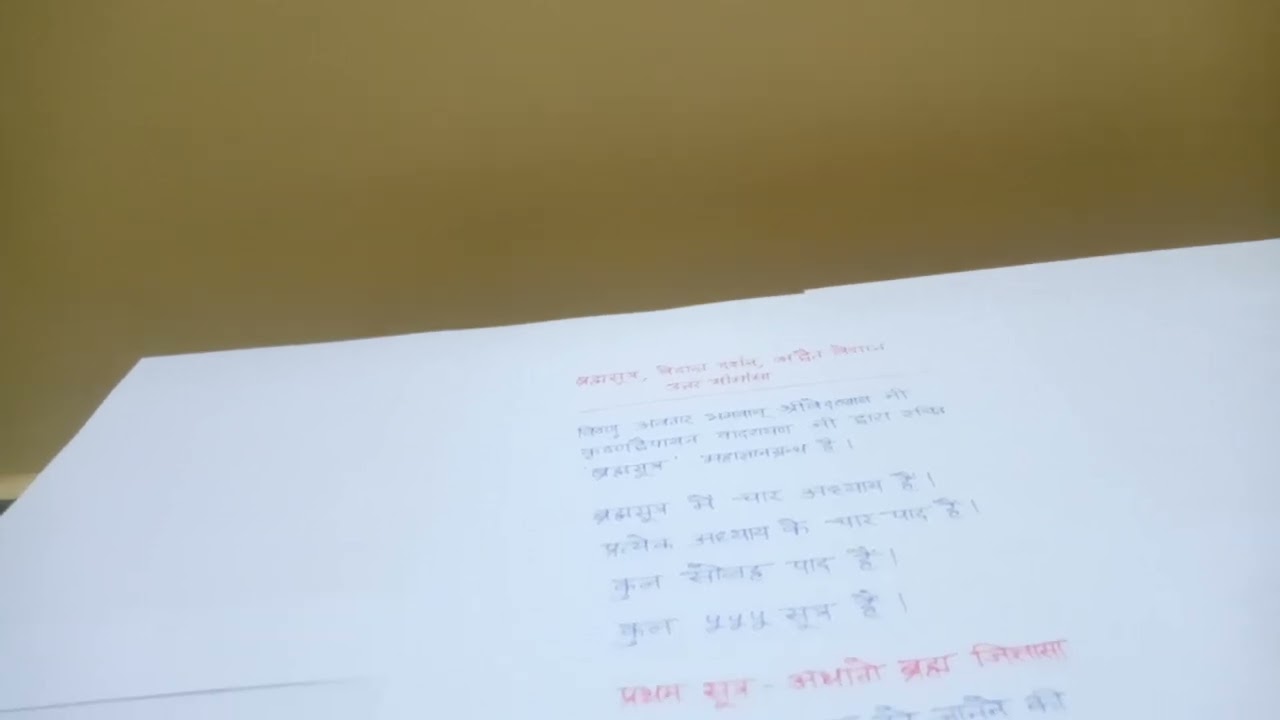 ब्रह्मसूत्र, वेदान्त दर्शन, अद्वैत वेदान्त
उत्तर मीमांसा
विष्णु अवतार भगवान् श्रीवेदव्यास जी
कृष्णद्वैपायन बादरायण जी द्वारा रचित
'ब्रह्मसूत्र' महाज्ञानग्रन्थ है।
ब्रह्मसूत्र में चार अध्याय हैं।
प्रत्येक अध्याय के चार पाद हैं।
कुल सोलह पाद हैं।
कुल ५५५ सूत्र हैं।
प्रथम सूत्र - अथातो ब्रह्म जिज्ञासा
जानने की